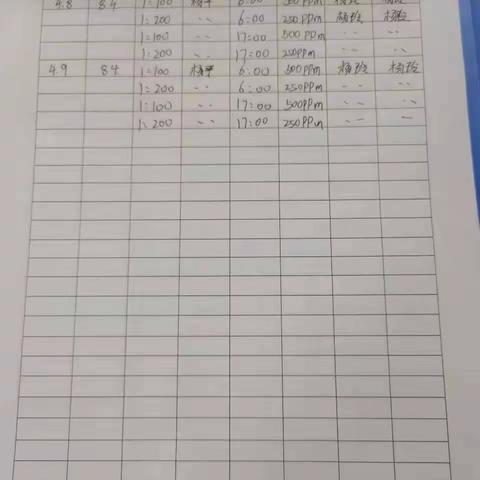 4.8 84 1:100 杨平 6:00 500PPm
1:200 〃 6:00 250PPm
1:100 〃 17:00 500PPm 〃 〃
1:200 〃 17:00 250PPm 〃 〃
4.9 84 1:100 杨平 6:00 500PPm
1:200 〃 6:00 250PPm 〃 〃
1:100 〃 17:00 500PPm 〃 〃
1:200 〃 17:00 250PPm 〃 〃